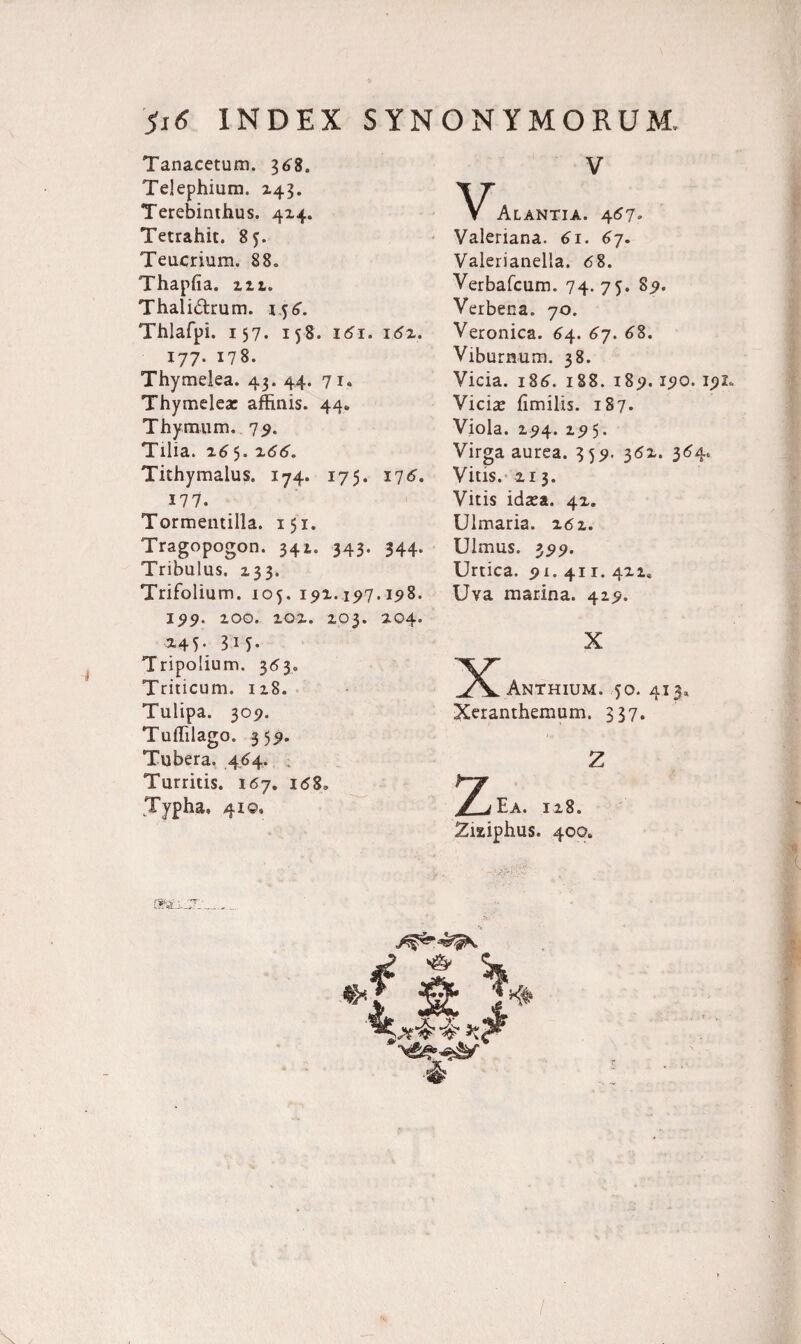 516 INDEX SYNONYMORUM.
Tanacetum. 368.
Telephium. 243.
Terebinthus. 424.
Tetrahit. 85.
Teucrium. 88.
Thapſia. 222.
Thalictrum. 156.
Thlaſpi. 157. 158. 161. 162.
177. 178.
Thymelea. 43. 44. 71.
Thymeleæ affinis. 44.
Thymum. 79.
Tilia. 265. 266.
Tithymalus. 174. 175. 176.
177.
Tormentilla. 151.
Tragopogon. 342. 343. 344.
Tribulus. 233.
Trifolium. 105. 192. 197. 198.
199. 200. 202. 203. 204.
245. 315.
Tripolium. 363.
Triticum. 128.
Tulipa. 309.
Tuſſilago. 359.
Tubera. 464.
Turritis. 167. 168.
Typha. 410.
V
VALANTIA. 467.
Valeriana. 61. 67.
Valerianella. 68.
Verbaſcum. 74. 75. 89.
Verbena. 70.
Veronica. 64. 67. 68.
Viburnum. 38.
Vicia. 186. 188. 189. 190. 191.
Viciæ ſimilis. 187.
Viola. 294. 295.
Virga aurea. 359. 362. 364.
Vitis. 213.
Vitis idæa. 42.
Ulmaria. 262.
Ulmus. 399.
Urtica. 91. 411. 422.
Uva marina. 429.
X
XANTHIUM. 50. 413.
Xeranthemum. 337.
Z
ZEA. 128.
Ziziphus. 400.